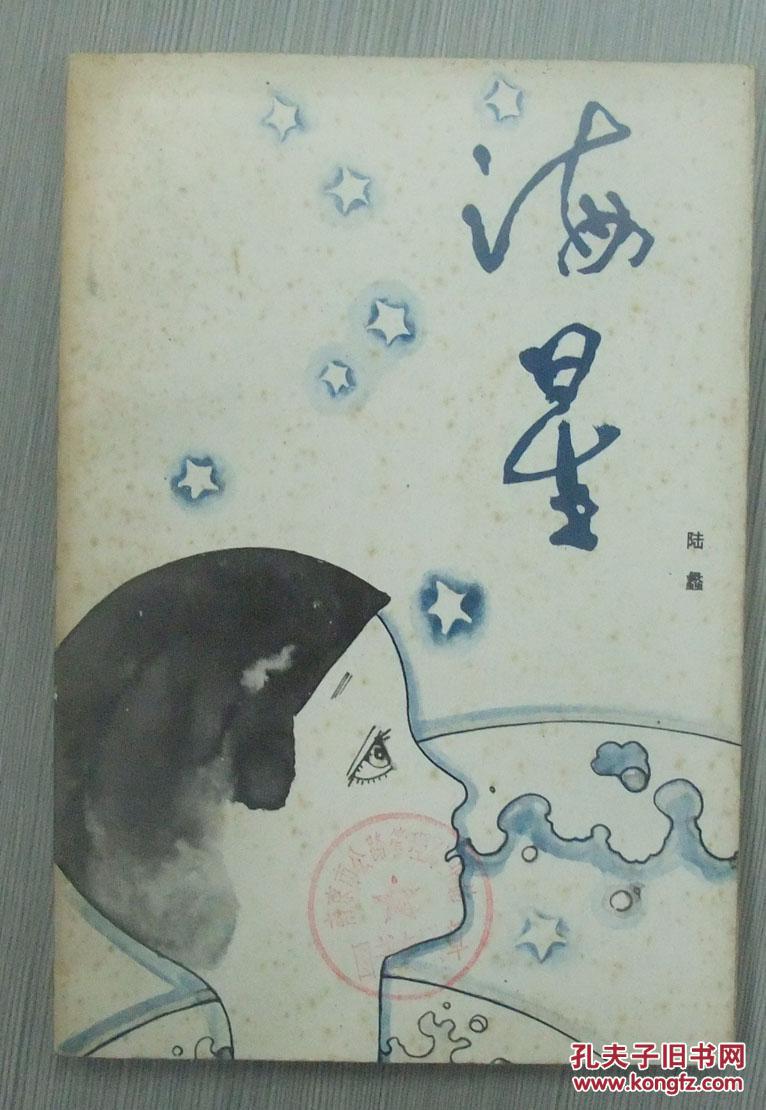 海星
陆蠡
孔夫子旧书网
www.kongfz.com